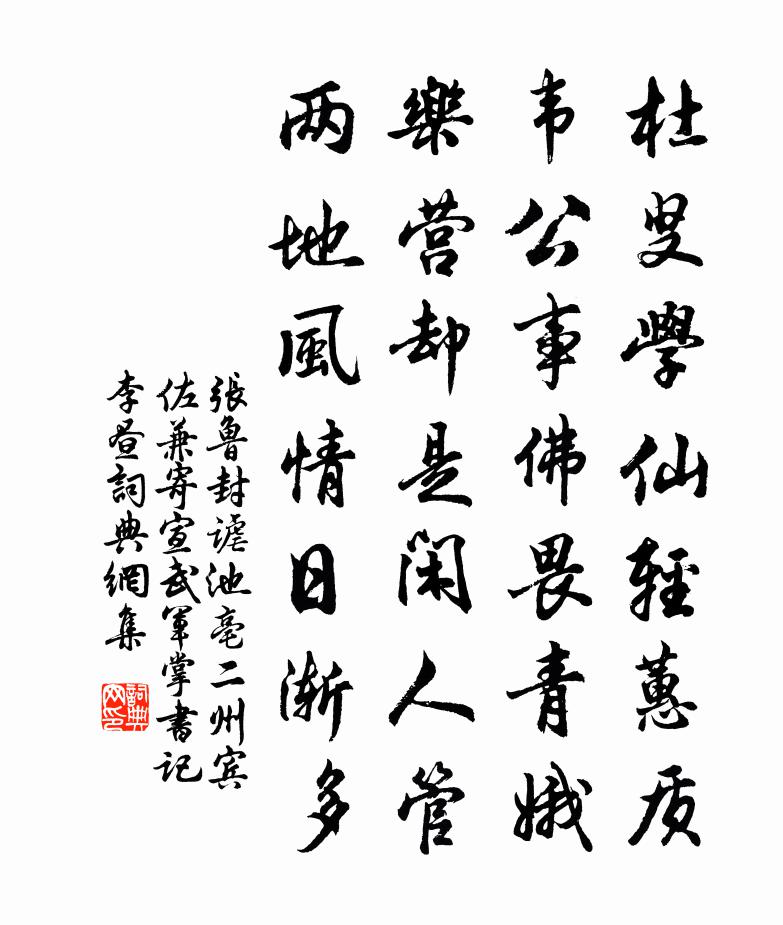 杜叟學仙輕蕙质
韦公事佛畏青娥
樂营却是閑人管
两地風情日渐多
張魯封谑池亳二州宾
佐兼寄宣武軍掌書记
李昼詞典網集
詞典网印